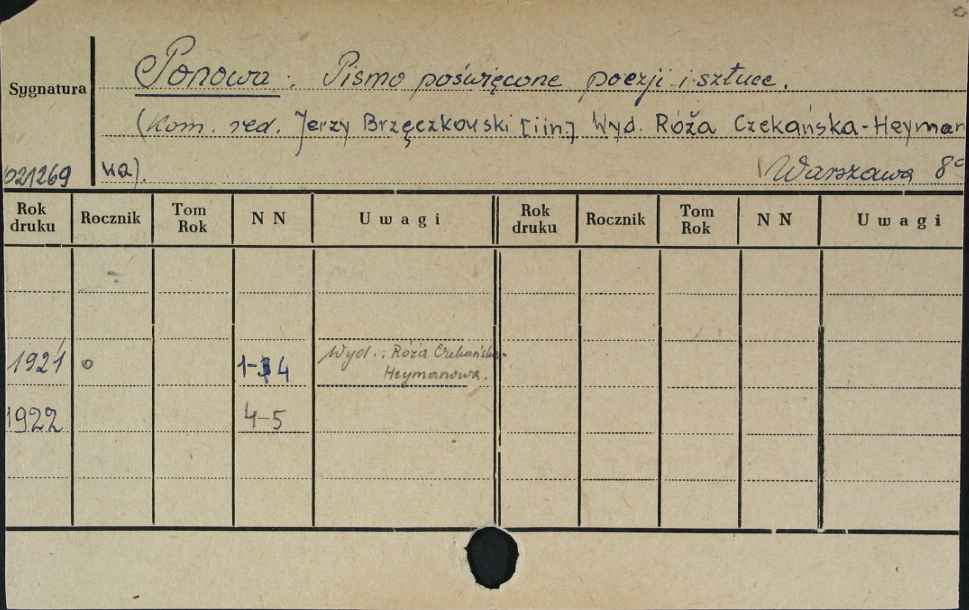 Ponowa : Pismo poświęcone poezji i sztuce.
Sygnatura
(Kom. red. Jerzy Brzęczkowski [i in.] Wyd. Róża Czekańska-Heymano
021269 wa).
Warszawa 8°
Rok druku Rocznik Tom Rok N N Uwagi Rok druku Rocznik Tom Rok N N Uwagi
1921 o 1-4 Wyd.: Róża Czekańska-
Heymanowa.
1922 4-5